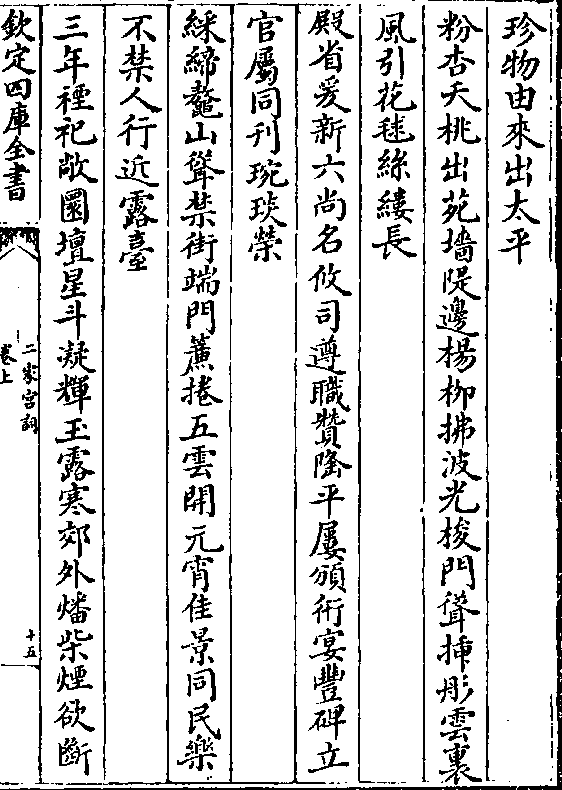 珍物由來出太平
粉杏夭桃出苑墻隄邊楊柳拂波光梭門聳揷彤雲裏
風引花毬絲縷長
殿省爰新六尚名攸司遵職贊隆平屢頒術宴豐碑立
官屬同刊琬琰榮
綵締鼇山聳禁街端門簾捲五雲開元宵佳景同民樂
不禁人行近露臺
三年禋祀敞圜壇星斗凝輝玉露寒郊外燔柴煙欲斷
欽定四庫全書
二家宮詞
卷上
十五